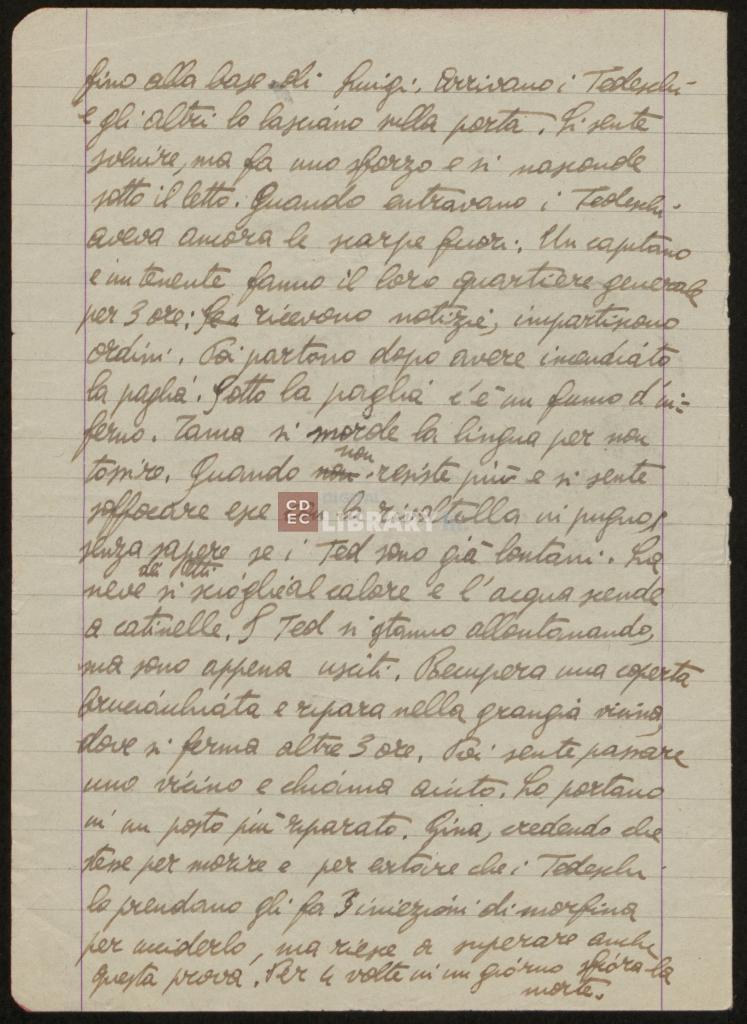 fino alla base di Luigi. Arrivano i Tedeschi
e gli altri lo lasciano sulla porta. Si sente
svenire, ma fa uno sforzo e si nasconde
sotto il letto. Quando entravano i Tedeschi
aveva ancora le scarpe fuori. Un capitano
e un tenente fanno il loro quartiere generale
per 3 ore: ricevono notizie, impartiscono
ordini. Poi partono dopo avere incendiato
la paglia. Sotto la paglia c'è un fumo d'in=
ferno. Tama si morde la lingua per non
tossire. Quando non resiste più e si sente
soffocare esce con la rivoltella in pugno,
senza sapere se i Ted sono già lontani. La
neve dei tetti si scioglie al calore e l'acqua scende
a catinelle. I Ted si stanno allontanando,
ma sono appena usciti. Recupera una coperta
bruciacchiata e ripara nella grangia vicina,
dove si ferma altre 3 ore. Poi sente passare
uno vicino e chiama aiuto. Lo portano
in un posto più riparato. Gina, credendo che
stesse per morire e per evitare che i Tedeschi
lo prendano gli fa 3 iniezioni di morfina
per ucciderlo, ma riesce a superare anche
questa prova. Per 4 volte in un giorno sfiora la
morte.
CD
EC
DIGITAL
LIBRARY